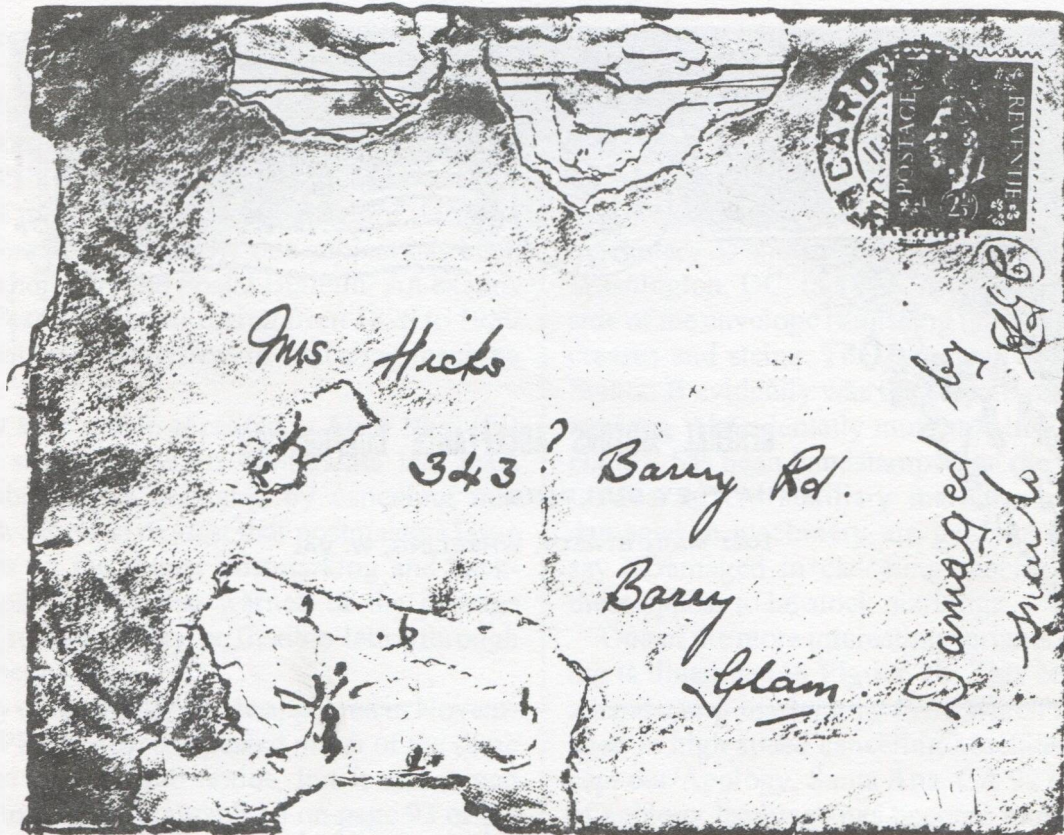 POSTAGE
REVENUE
2½
Mrs Hicks
343? Barry Rd.
Barry
Glam.
Damaged by
snails